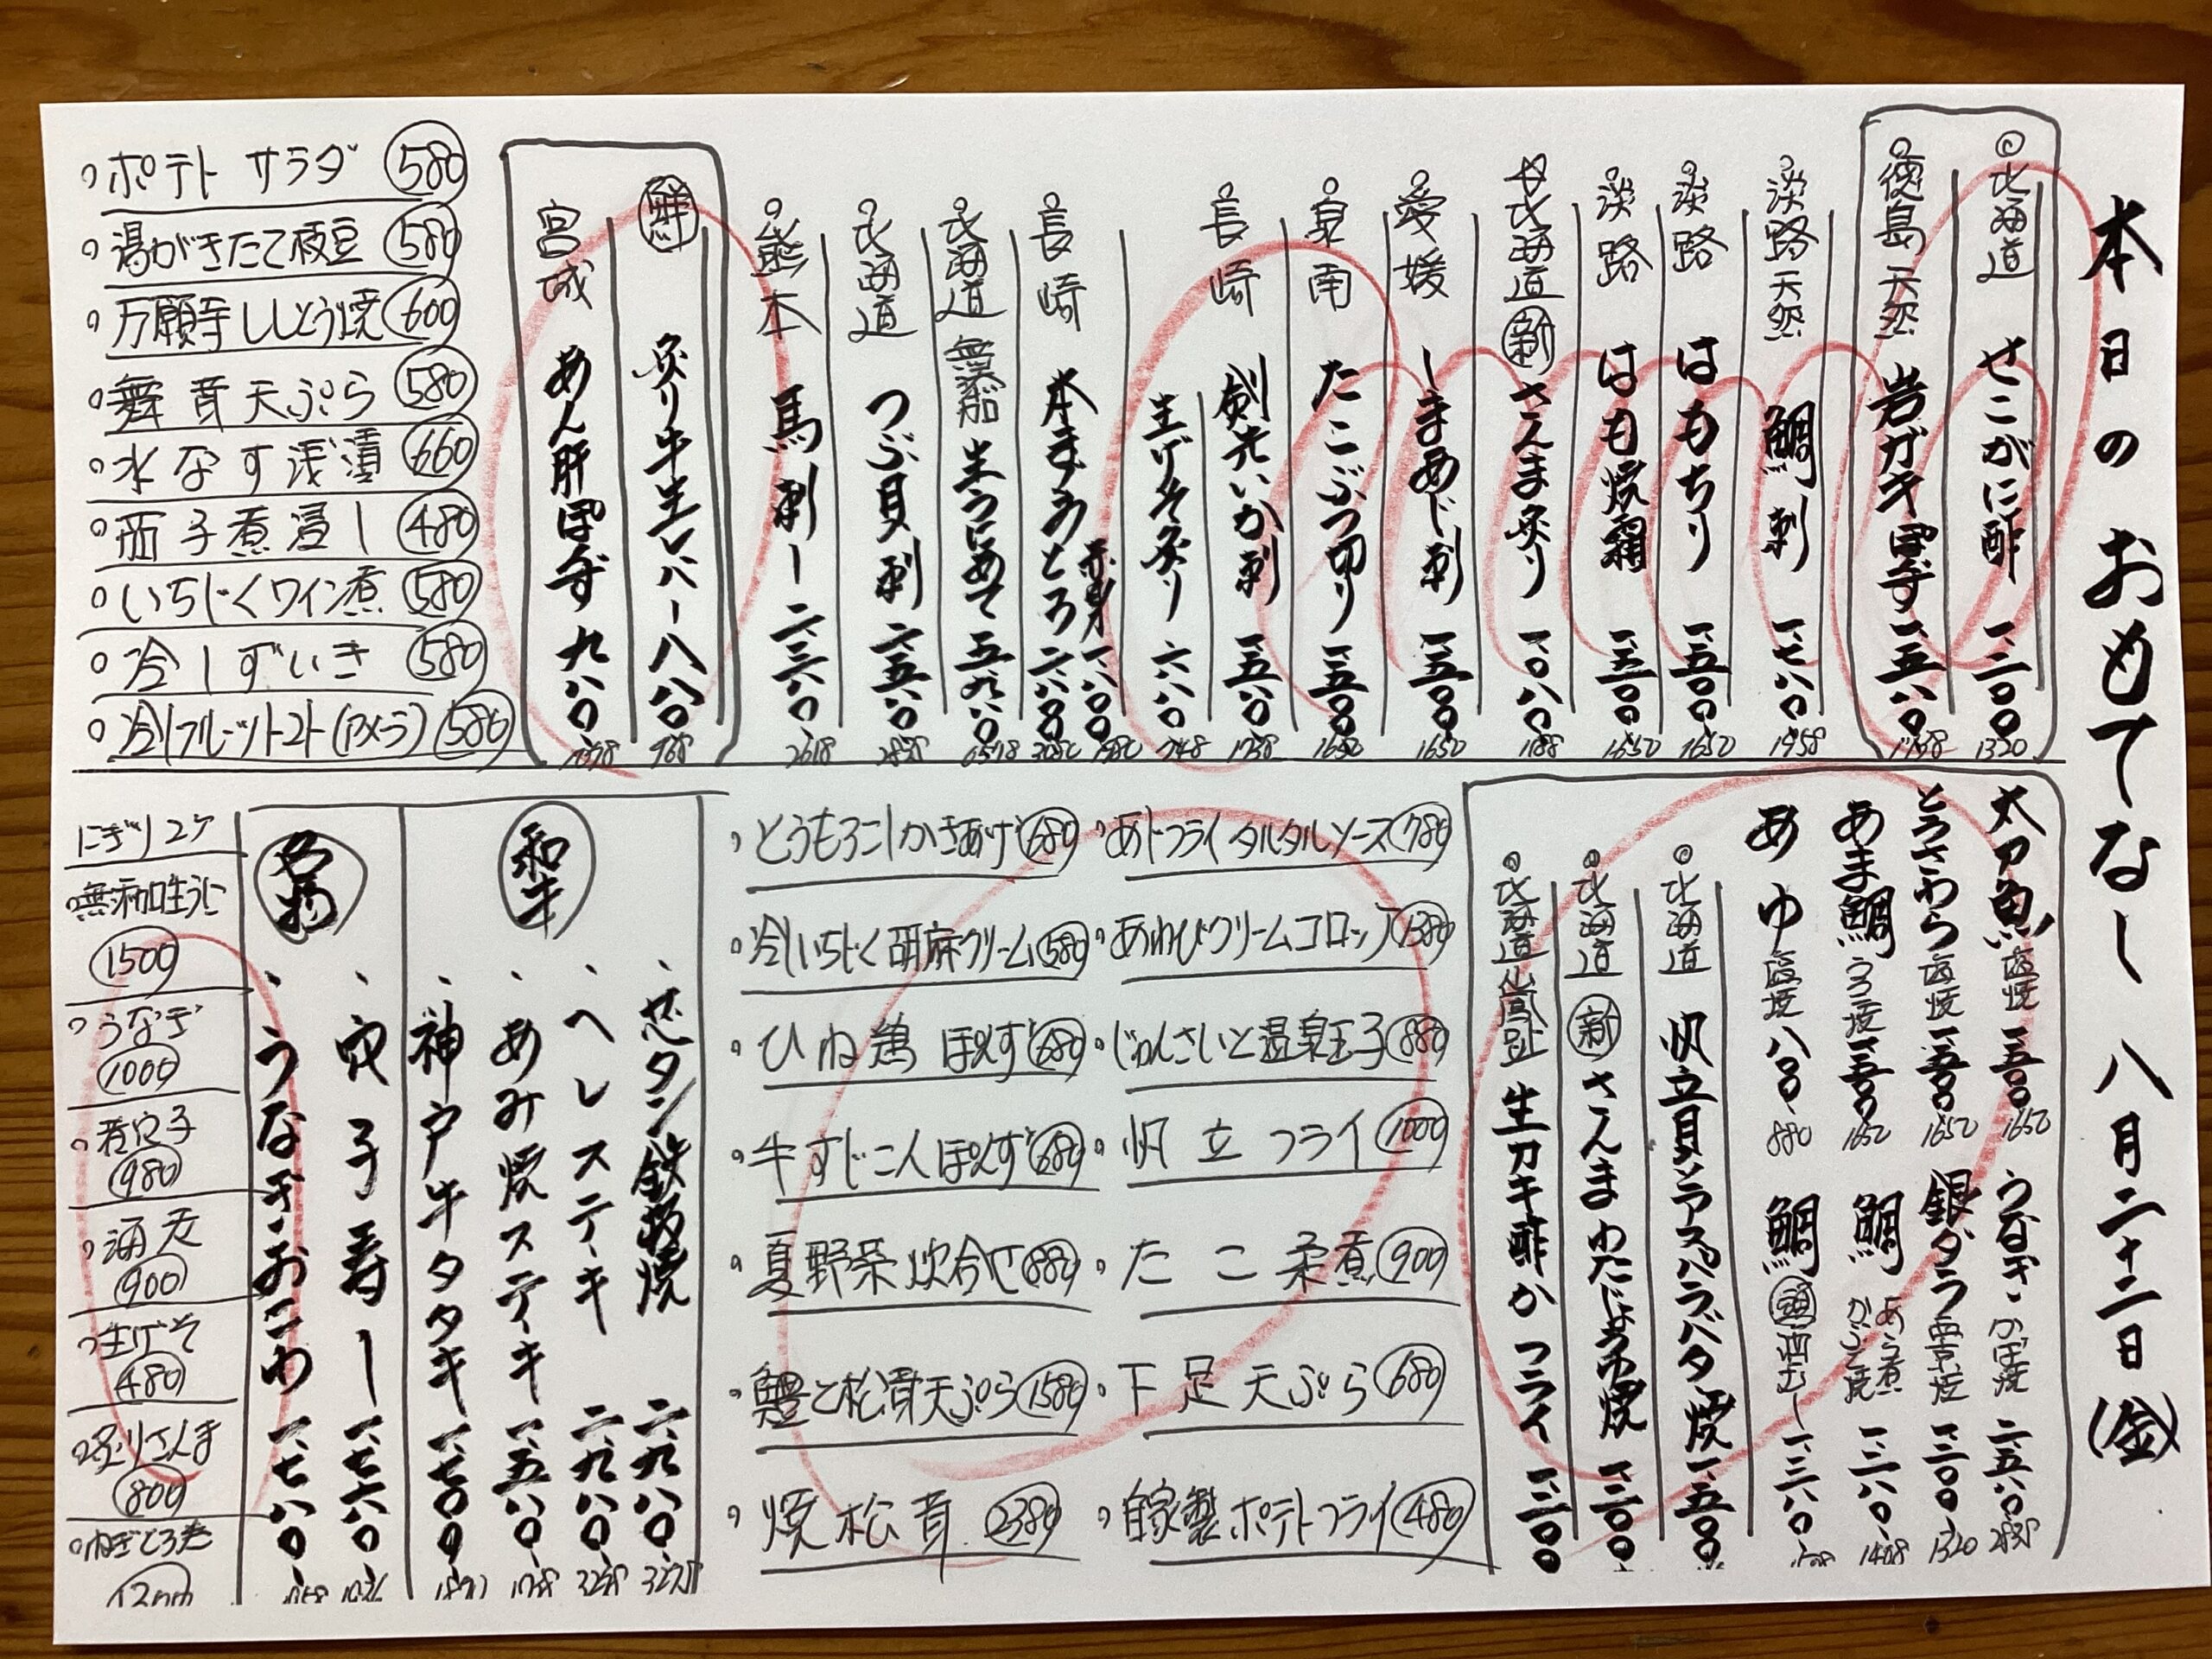 本日のおもてなし 八月二十二日(金)
北海道 せこがに酢 一、二〇〇 1320
徳島 天然 岩ガキ ぽんず 一、五八〇 1738
淡路 天然 鯛刺 一、七八〇 1958
淡路 はもちり 一、五〇〇 1650
淡路 はも焼霜 一、五〇〇 1650
北海道 新 さんま炙り 一、〇八〇 1188
愛媛 しまあじ刺 一、五〇〇 1650
泉南 たこぶつ切り 一、五〇〇 1650
長崎 剣先いか刺 一、五八〇 1738
生げそ炙り 六八〇 748
長崎 本まぐろ 赤身 一、八〇〇 1980
とろ 二、八〇〇 3080
北海道 無添加 生うにあて 五、九八〇 6578
北海道 つぶ貝刺 二、五八〇 2838
熊本 馬刺し 二、三八〇 2618
鮮 炙り牛生レバー 八八〇 968
宮城 あん肝ぽんず 九八〇 1078
ポテトサラダ 580
湯がきたて枝豆 580
万願寺ししとう焼 600
舞茸天ぷら 580
水なす浅漬 660
茄子煮浸し 480
いちじくワイン煮 580
冷しずいき 580
冷しフルーツトマト(アメーラ) 580
太刀魚 塩焼 一、五〇〇 1650
とろさわら 塩焼 一、五〇〇 1650
あま鯛 うろこ焼 一、五〇〇 1650
あゆ 塩焼 八〇〇 880
うなぎ かば焼 二、五八〇 2838
銀ダラ 雲丹焼 一、二〇〇 1320
鯛 あら煮 かぶと焼 一、二八〇 1408
鯛 酒蒸し 一、三八〇
北海道 帆立貝とアスパラバター焼 一、五〇〇
北海道 新 さんまわたじょうゆ焼 一、二〇〇
北海道 仙鳳趾 生ガキ酢かフライ 一、二〇〇
あじフライタルタルソース 780
あわびクリームコロッケ 1380
じゅんさいと温泉玉子 880
帆立フライ 1000
たこ柔煮 900
下足天ぷら 680
自家製ポテトフライ 480
とうもろこしかきあげ 680
冷しいちじく胡麻クリーム 580
ひね鶏ぽんず 680
牛すじこんぽんず 680
夏野菜炊合せ 880
鱧と松茸天ぷら 1580
焼松茸 2380
和牛
、ゼタン鉄板焼 二、九八〇 3278
、ヘレステーキ 二、九八〇 3278
、あみ焼ステーキ 一、五八〇 1738
、神戸牛タタキ 一、七〇〇 1870
名物
、穴子寿し 一、七六〇
、うなぎおこわ 一、七八〇
にぎり2ケ
無添加生うに
1500
うなぎ
1000
煮穴子
980
海老
900
生げそ
480
炙りさんま
800
ねぎとろ巻
1200